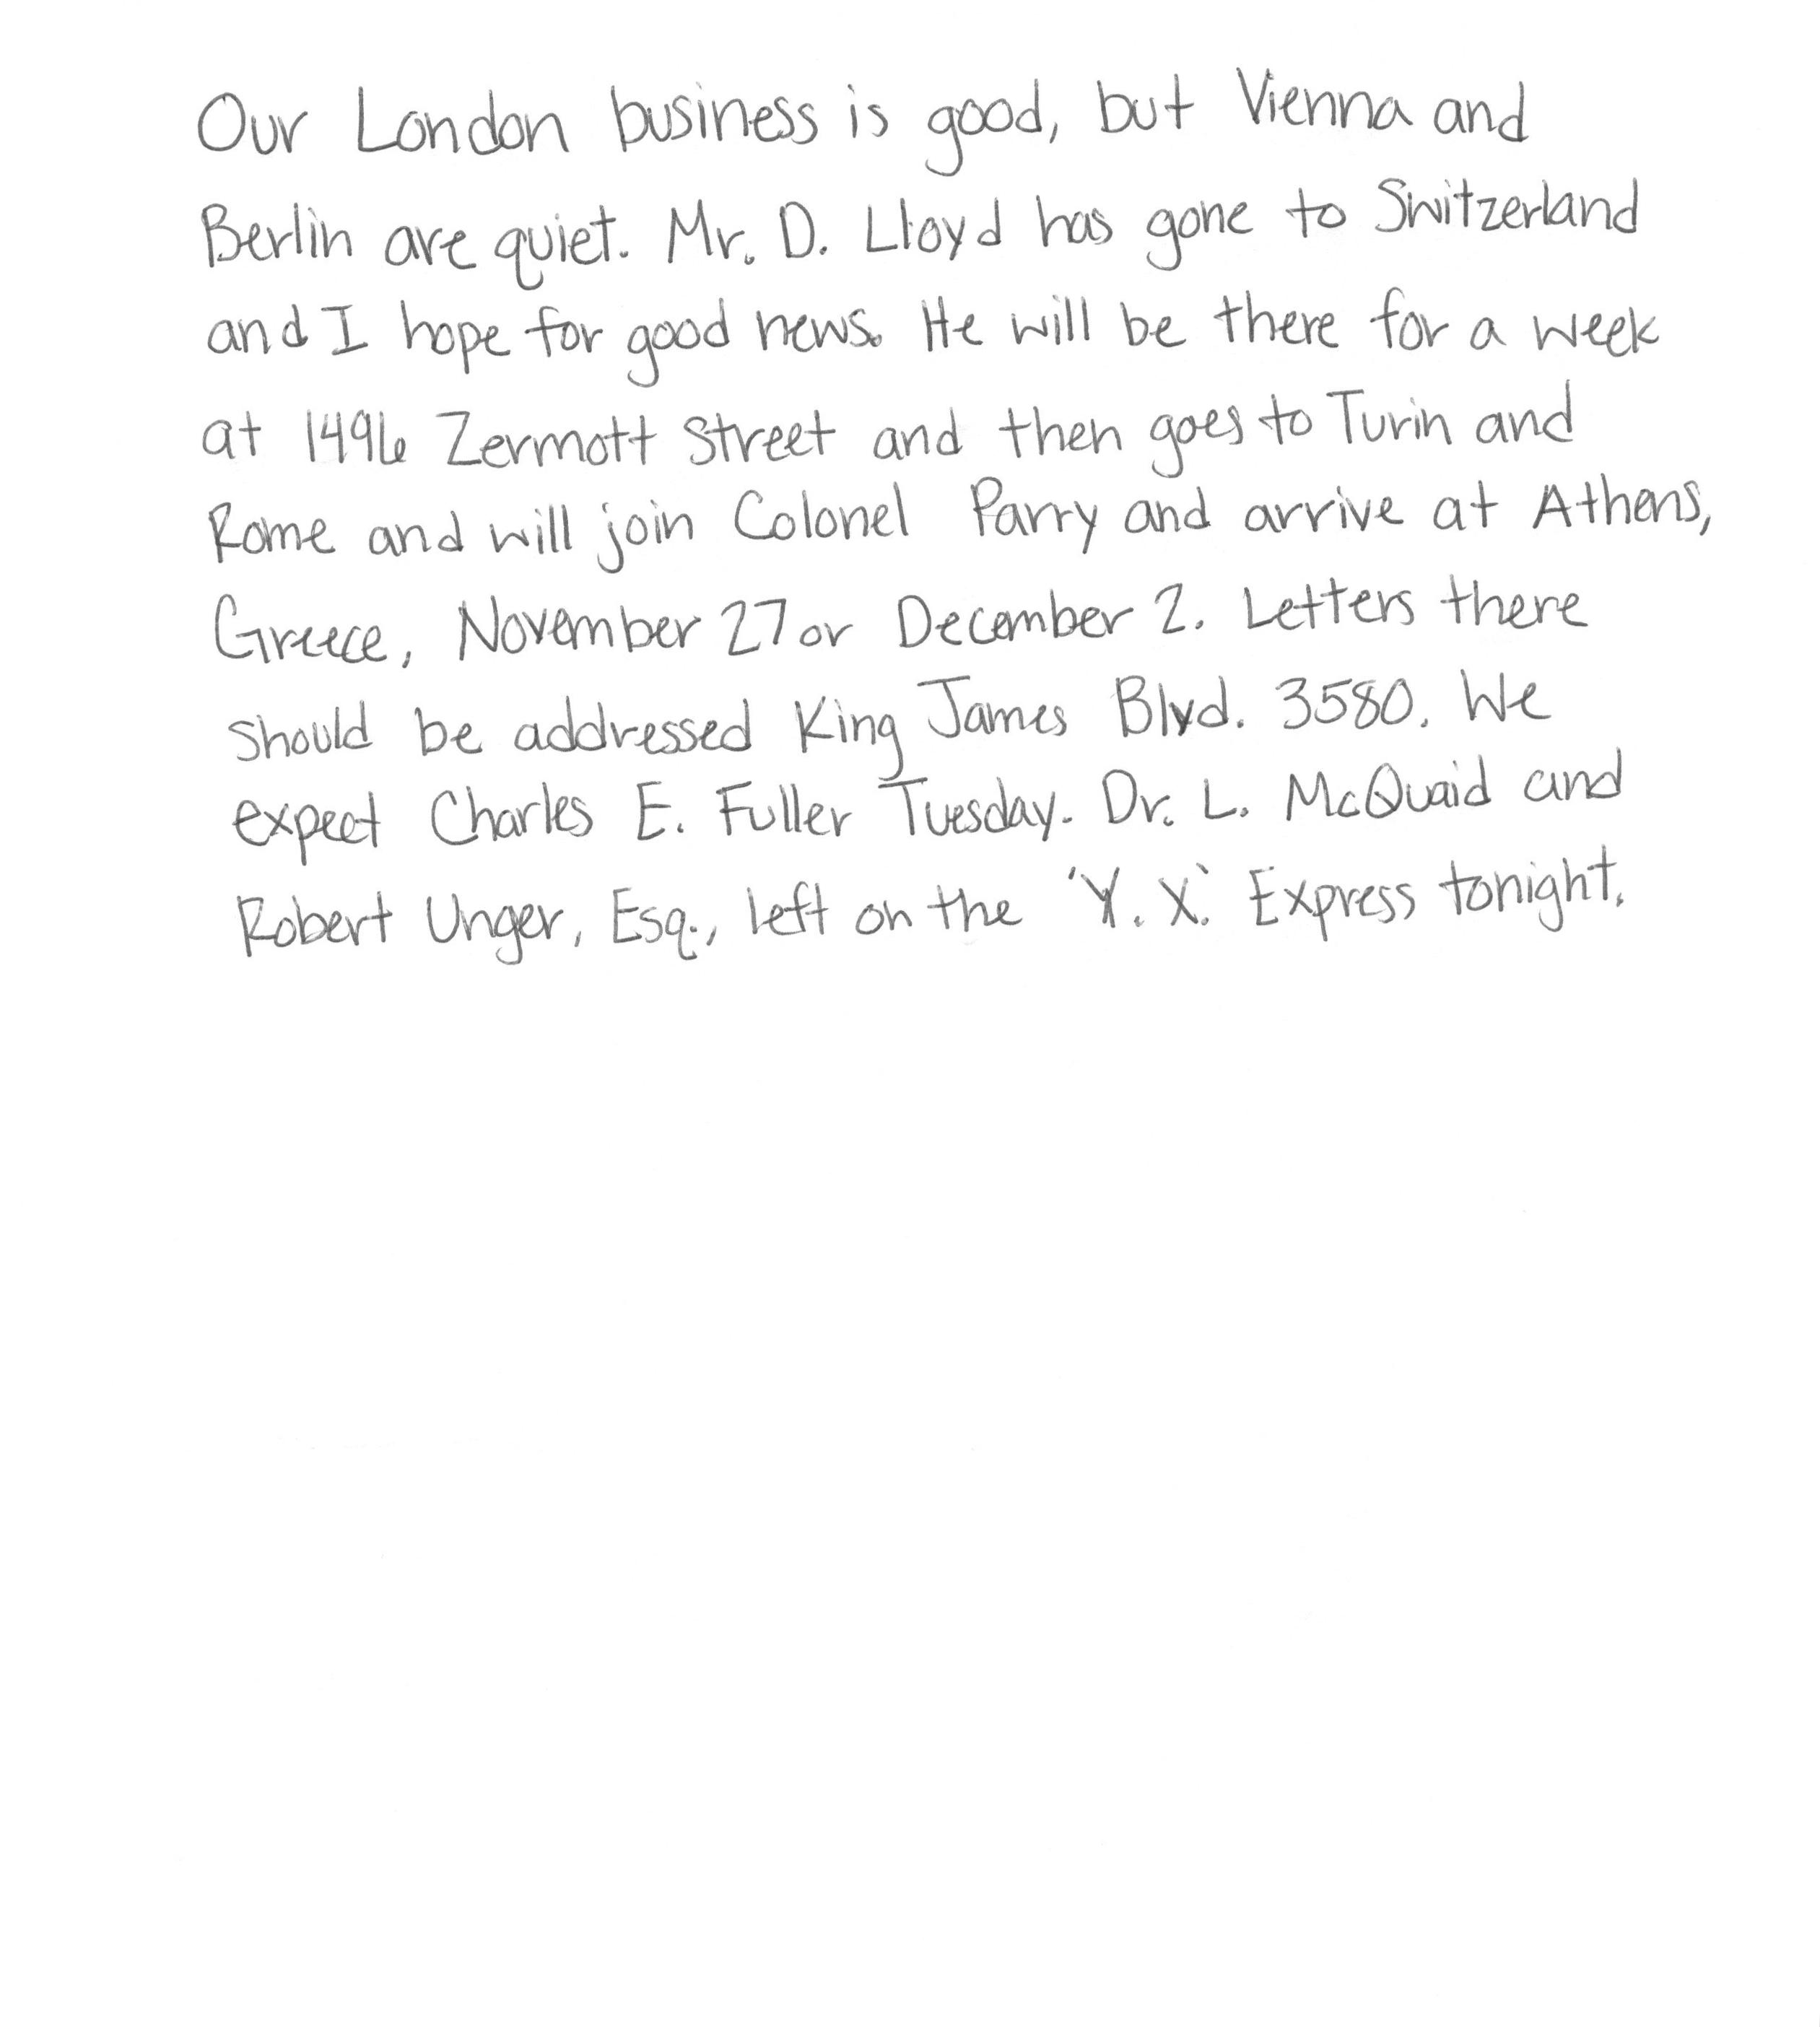 Our London business is good, but Vienna and
Berlin are quiet. Mr. D. Lloyd has gone to Switzerland
and I hope for good news. He will be there for a week
at 1496 Zermott Street and then goes to Turin and
Rome and will join Colonel Parry and arrive at Athens,
Greece, November 27 or December 2. Letters there
should be addressed King James Blvd. 3580. We
expect Charles E. Fuller Tuesday. Dr. L. McQuaid and
Robert Unger, Esq., left on the 'Y. X.' Express tonight.